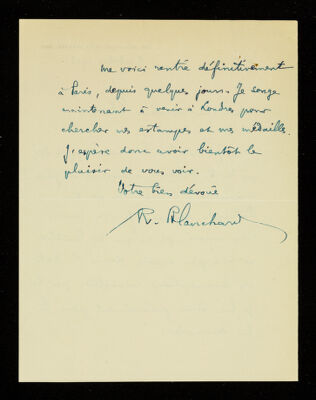 me voici rentré définitivement
à Paris, depuis quelques jours. Je songe
maintenant à venir à Londres pour
chercher mes estampes et ma médaille.
J'espère donc avoir bientôt le
plaisir de vous voir.
Votre très dévoué
R. Blanchard